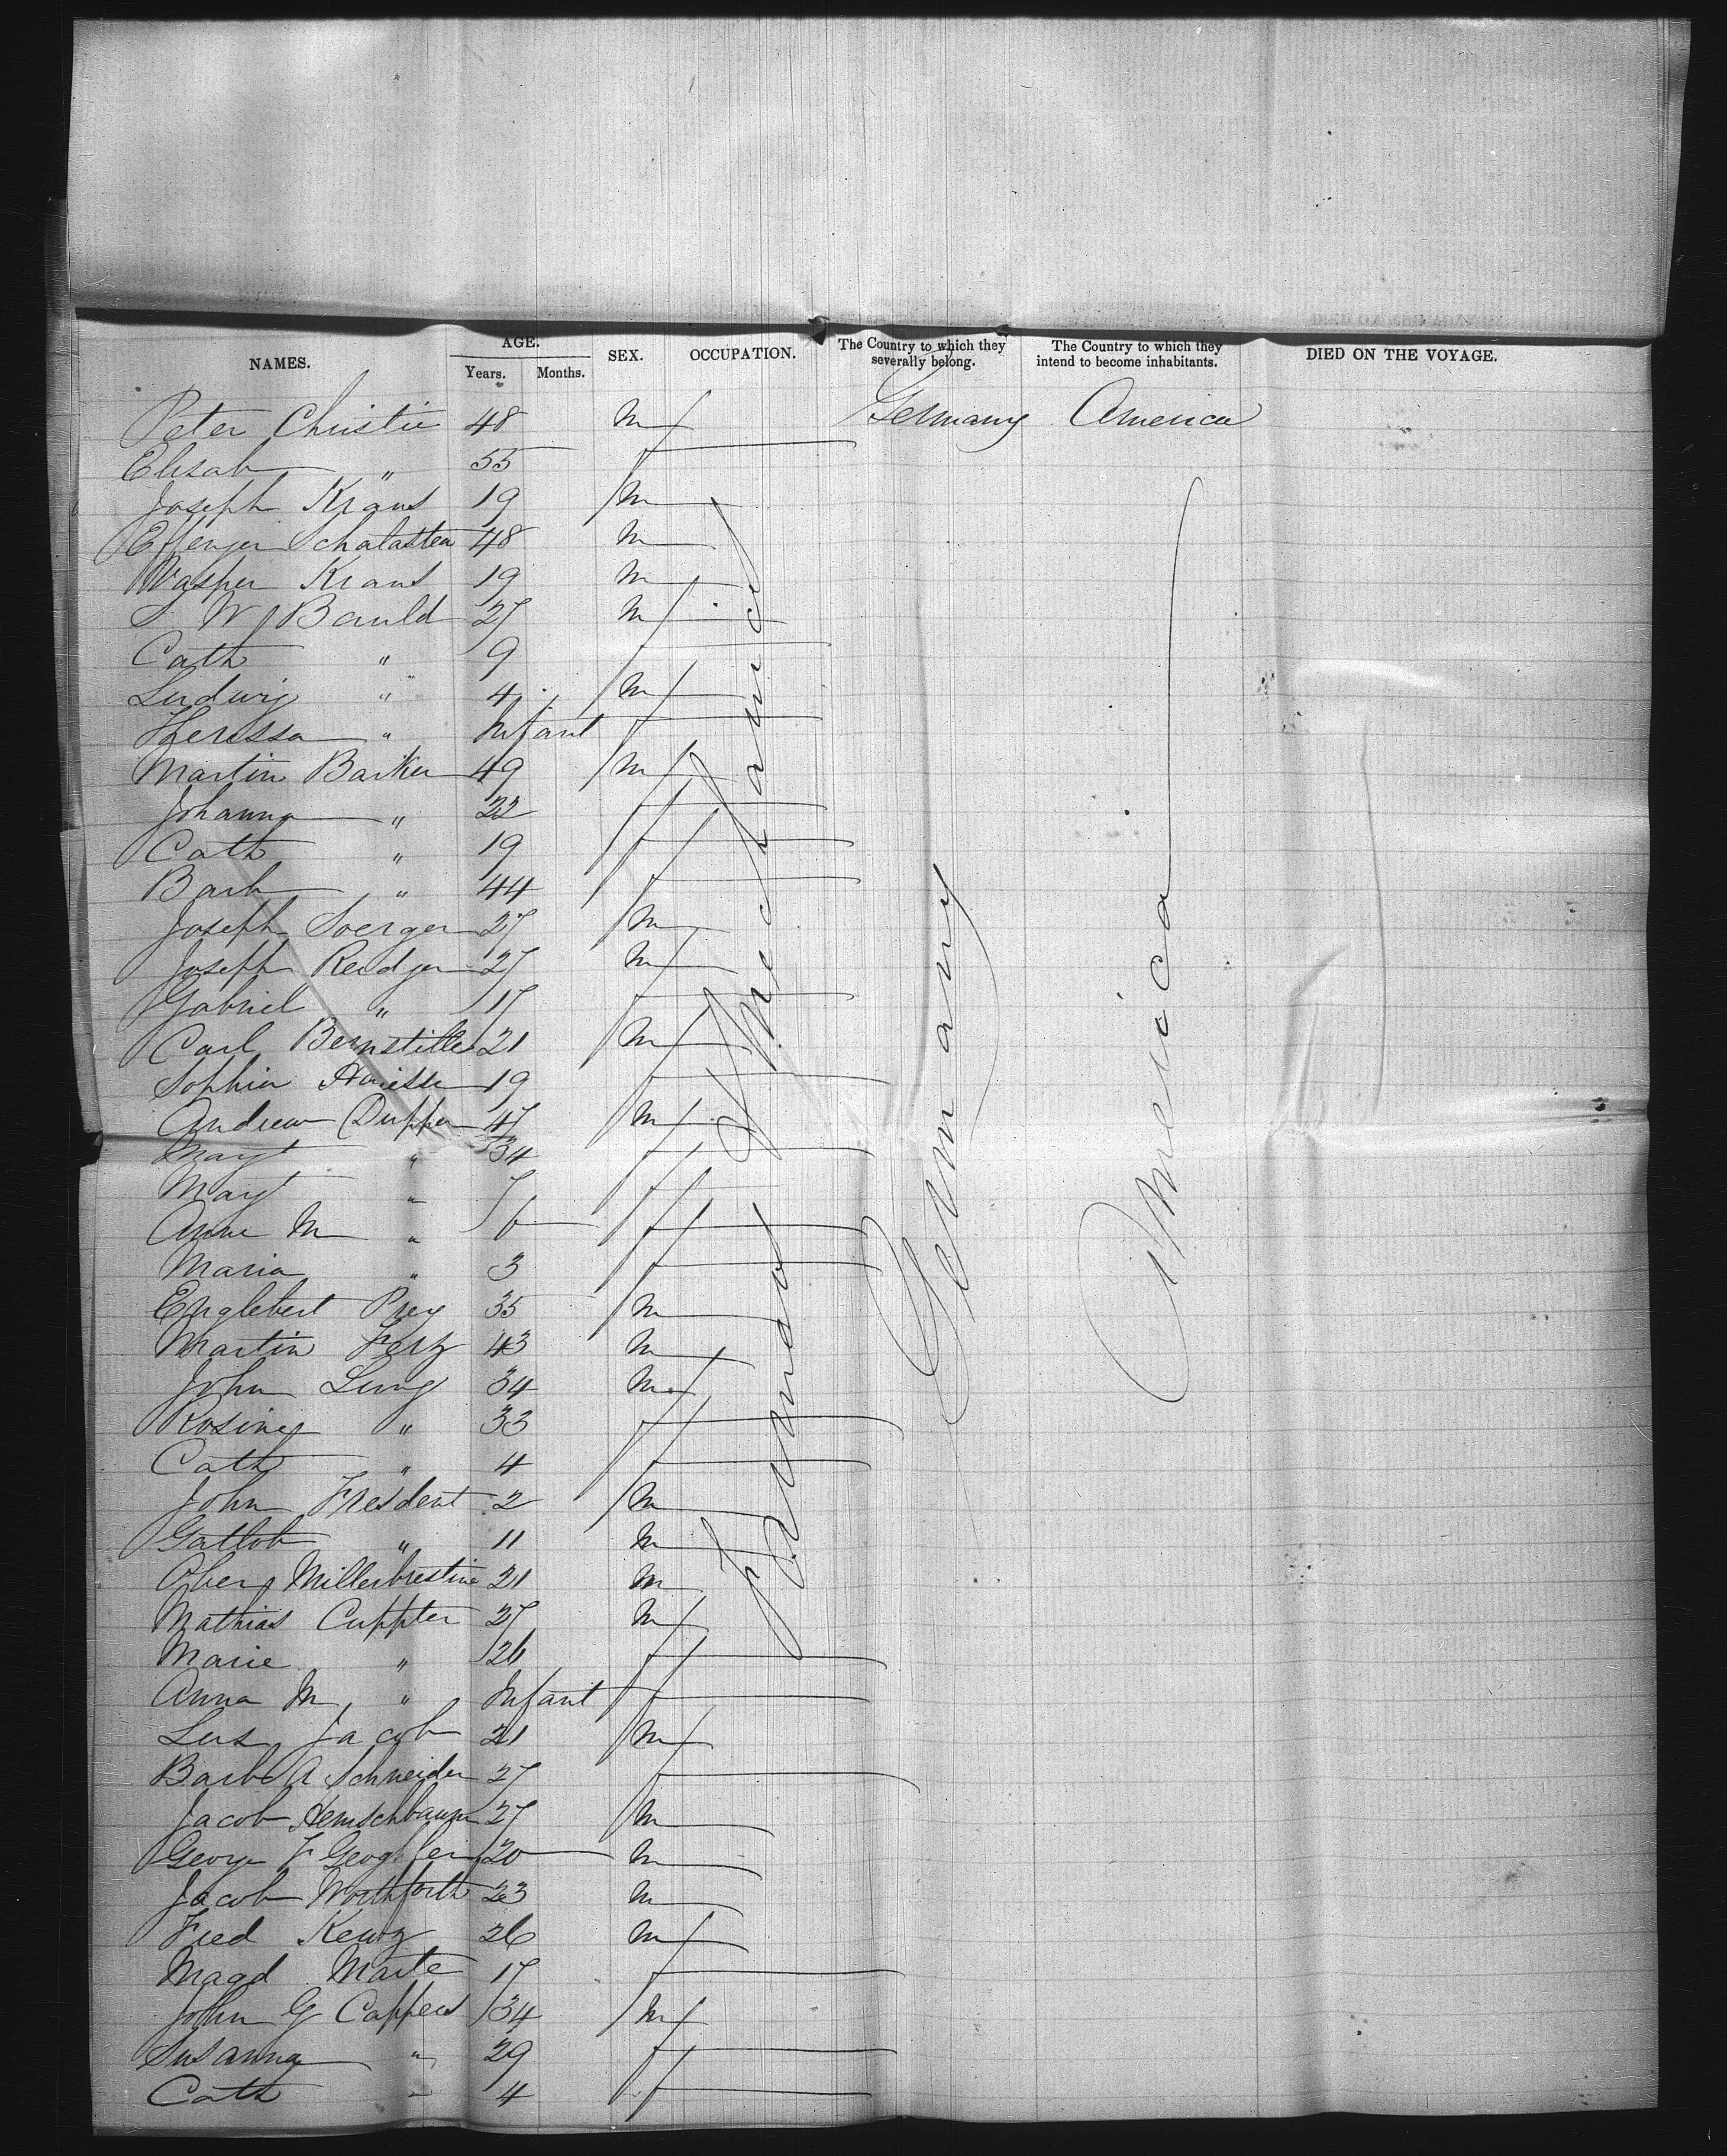 NAMES. AGE. SEX. OCCUPATION. The Country to which they severally belong. The Country to which they intend to become inhabitants. DIED ON THE VOYAGE.
Years. Months.
Peter Christie 48 m Germany America
Elisab " 55 f
Joseph Kraus 19 m
Effenger Schalasten 48 m
Kraus 19 m
Bauld 27 m
Cath " 9 f
Ludwig " 4 m
Theressa " Infant f
Martin Barker 49 m
Johanna " 22 f
Cath " 19 f
Barb " 44 f
Joseph Soerger 27 m
Joseph Reidger 27 m
Gabriel " 17 f
Carl Bernstille 21 m
Sophia 19 f
Andrew Dupper 47 m
Margt " 34 f
Margt " 7 f
Anne M " 6 f
Maria " 3 f
Englebert Prey 35 m
Martin Ferz 43 m
John Lung 34 m
Rosine " 33 f
Cath " 4 f
John Fresdent 2 m
Gatlob " 11 m
Ober Millerbrestine 21 m
Mathias Cuppter 27 m
Marie " 26 f
Anna M " Infant f
Jacob 21 m
Barb A Schneider 27 f
Jacob Hemschbaum 27 m
George F 20 m
Jacob Worthforth 23 m
Fred Kenz 26 m
Magd Marte 17 f
John G Cappers 34 m
Susanna " 29 f
Cath " 4 f
Farmers & Mechanics
Germany
America